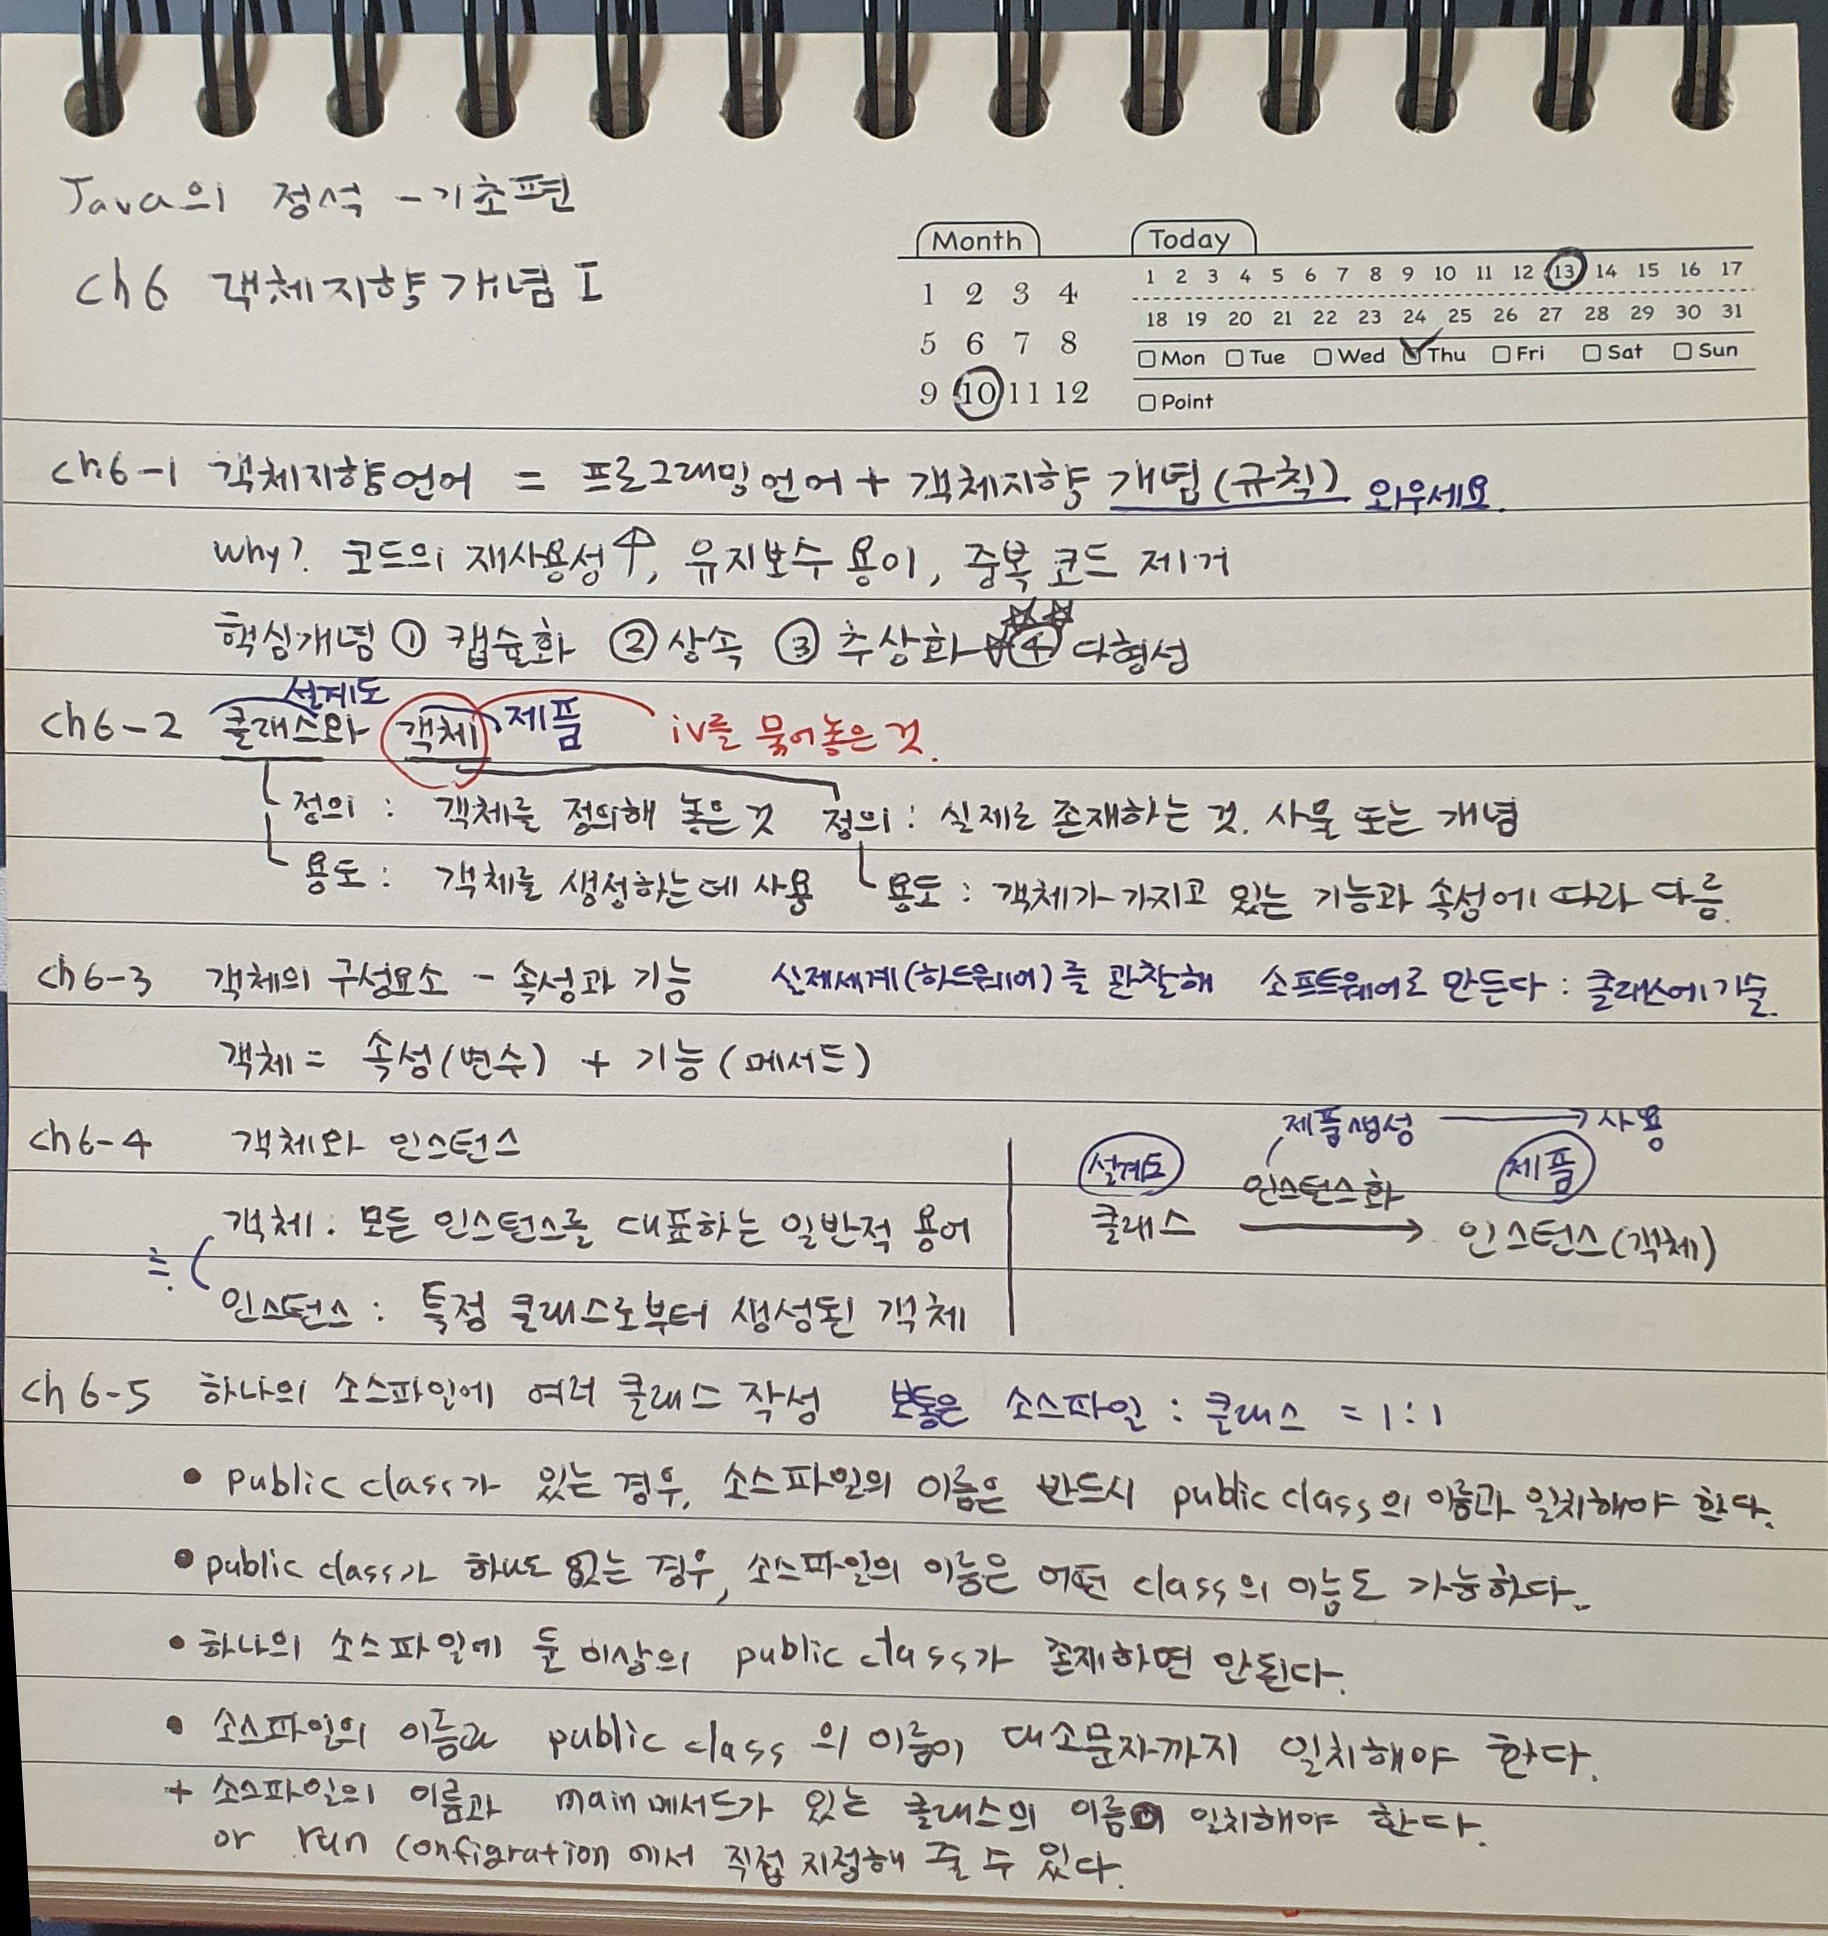 Java의 정석 - 기초편
ch6 객체지향개념 I
Month
1 2 3 4
5 6 7 8
9 10 11 12
Today
1 2 3 4 5 6 7 8 9 10 11 12 13 14 15 16 17
18 19 20 21 22 23 24 25 26 27 28 29 30 31
Mon Tue Wed Thu Fri Sat Sun
Point
ch6-1 객체지향언어 = 프로그래밍언어 + 객체지향 개념(규칙) 외우세요.
why? 코드의 재사용성↑, 유지보수 용이, 중복 코드 제거
핵심개념 ① 캡슐화 ② 상속 ③ 추상화 ④ 다형성
설계도
ch6-2 클래스와 객체 제품 iv를 묶어놓은 것.
정의 : 객체를 정의해 놓은 것 정의 : 실제로 존재하는 것. 사물 또는 개념
용도 : 객체를 생성하는데 사용 용도 : 객체가 가지고 있는 기능과 속성에 따라 다름.
ch6-3 객체의 구성요소 - 속성과 기능 실제세계(하드웨어)를 관찰해 소프트웨어로 만든다 : 클래스에 기술.
객체 = 속성(변수) + 기능(메서드)
ch6-4 객체와 인스턴스
객체 : 모든 인스턴스를 대표하는 일반적 용어
≒
인스턴스 : 특정 클래스로부터 생성된 객체
제품생성 → 사용
설계도 인스턴스화 제품
클래스 → 인스턴스(객체)
ch6-5 하나의 소스파일에 여러 클래스 작성 보통은 소스파일 : 클래스 = 1 : 1
• public class가 있는 경우, 소스파일의 이름은 반드시 public class의 이름과 일치해야 한다.
• public class가 하나도 없는 경우, 소스파일의 이름은 어떤 class의 이름도 가능하다.
• 하나의 소스파일에 둘 이상의 public class가 존재하면 안된다.
• 소스파일의 이름과 public class 의 이름이 대소문자까지 일치해야 한다.
+ 소스파일의 이름과 main메서드가 있는 클래스의 이름이 일치해야 한다.
or run configration에서 직접 지정해 줄 수 있다.